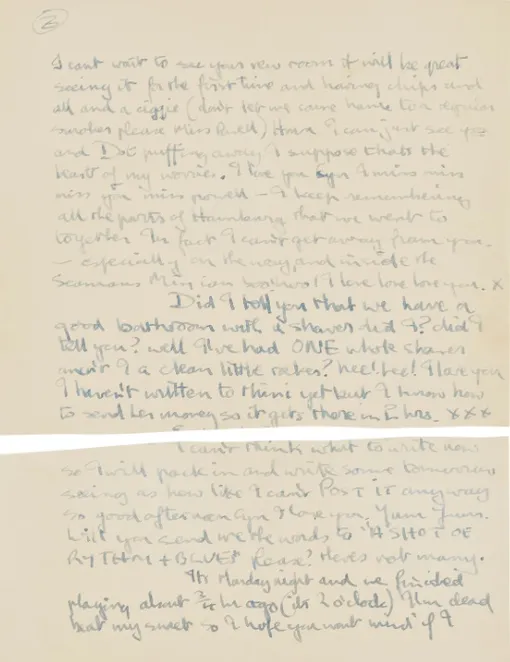 2
I cant wait to see your new room it will be great
seeing it for the first time and having chips and
all and a ciggie (don't let me come home to a regular
smoker please Miss Powell) Hmm I can just see you
and Dot puffing away, I suppose thats the
least of my worries. I love you Cyn I miss miss
miss you miss powell – I keep remembering
all the parts of Hamburg that we went to
together In fact I can't get away from you.
– especially on the way, and inside the
Seamans Mission I love love love you. X
Did I tell you that we have a
good bathroom with a shower did I? did I
tell you? well I've had ONE whole shower
aren't I a clean little raker? hee! hee! I love you
I haven't written to Mimi yet but I know how
to send her money so it gets there in hrs. X X X
I can't think what to write now
so I will pack in and write some tomorrow
seeing as how like I can't POST IT anyway
so good afternoon Cyn I love you, Yum Yum.
Will you send me the words to "A SHOT OF
RYTHM + BLUES" Please? Theres not many.
Its Monday night and we finished
playing about 3/4 hr ago (its 2 o'clock) I'm dead
beat my sweet so I hope you wont mind if I